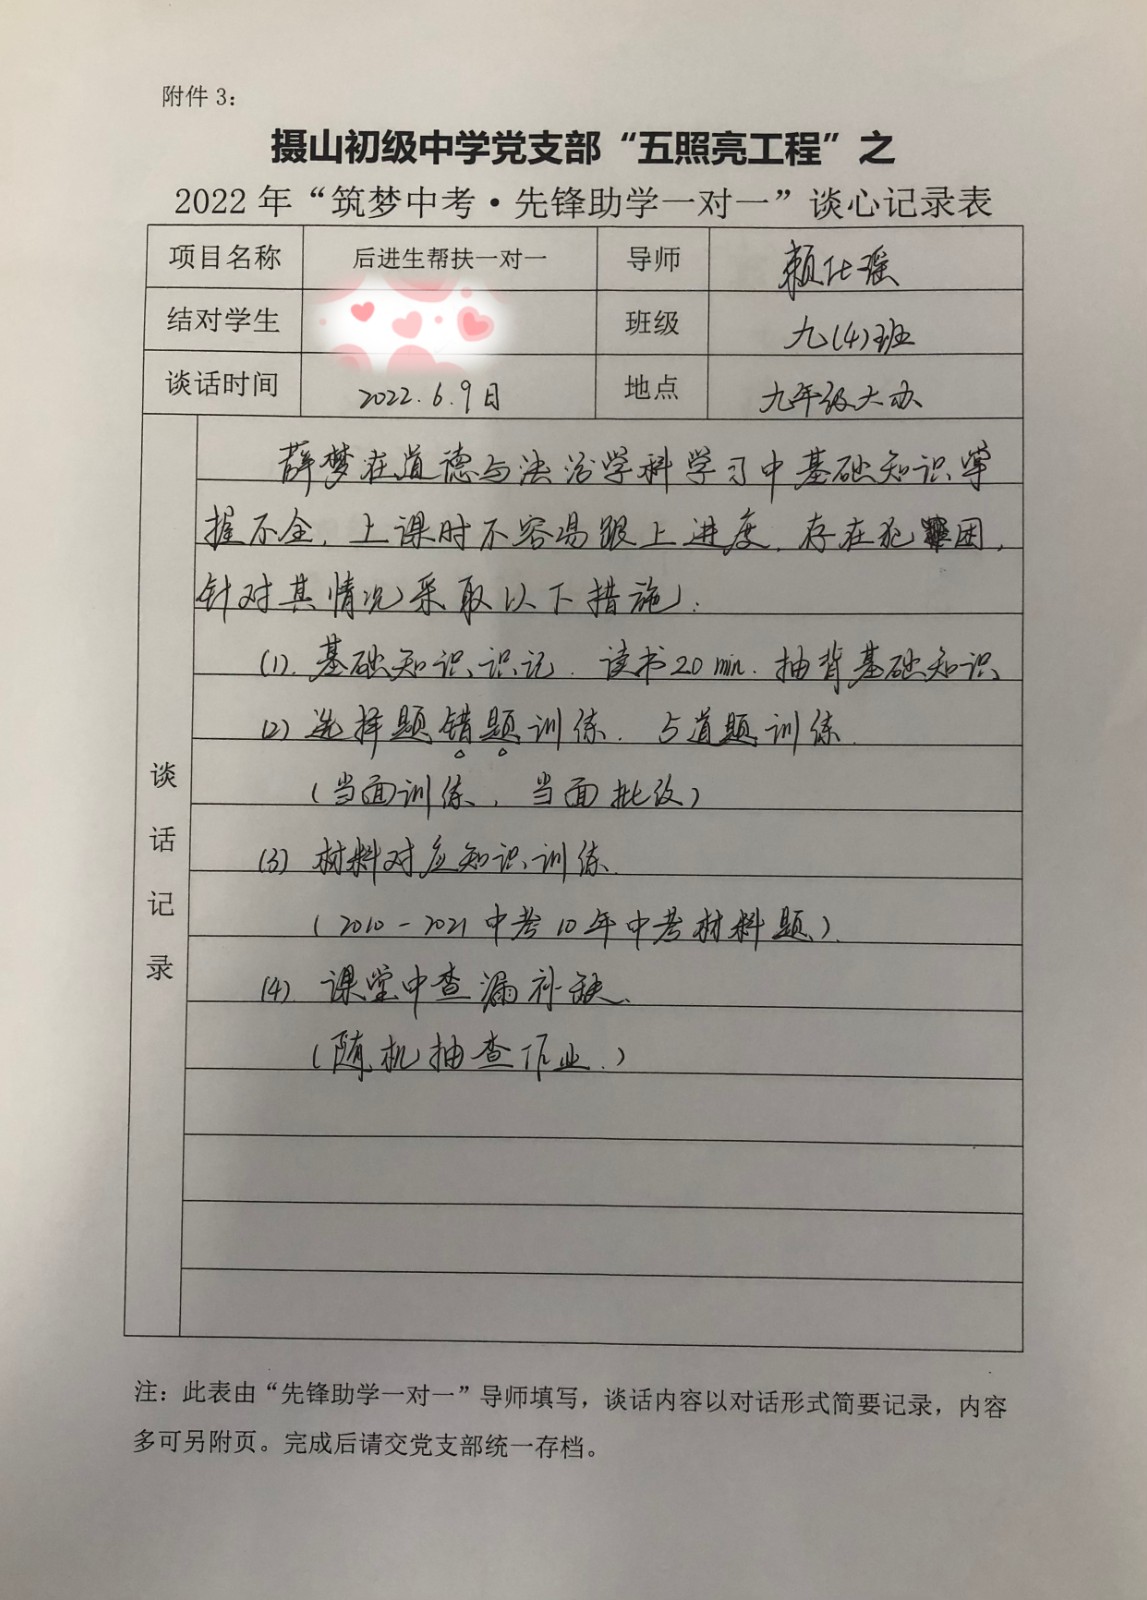 附件 3：
摄山初级中学党支部“五照亮工程”之
2022 年“筑梦中考·先锋助学一对一”谈心记录表
项目名称 后进生帮扶一对一 导师 赖仕瑶
结对学生 班级 九(4)班
谈话时间 2022.6.9日 地点 九年级大办
谈话记录
薛梦在道德与法治学科学习中基础知识掌
握不全，上课时不容易跟上进度，存在犯困，
针对其情况采取以下措施：
(1). 基础知识识记．读书20 min．抽背基础知识
(2) 选择题错题训练．5道题训练．
(当面训练，当面批改)
(3) 材料对应知识训练．
(2010-2021中考10年中考材料题)．
(4). 课堂中查漏补缺．
(随机抽查作业．)
注：此表由“先锋助学一对一”导师填写，谈话内容以对话形式简要记录，内容
多可另附页。完成后请交党支部统一存档。